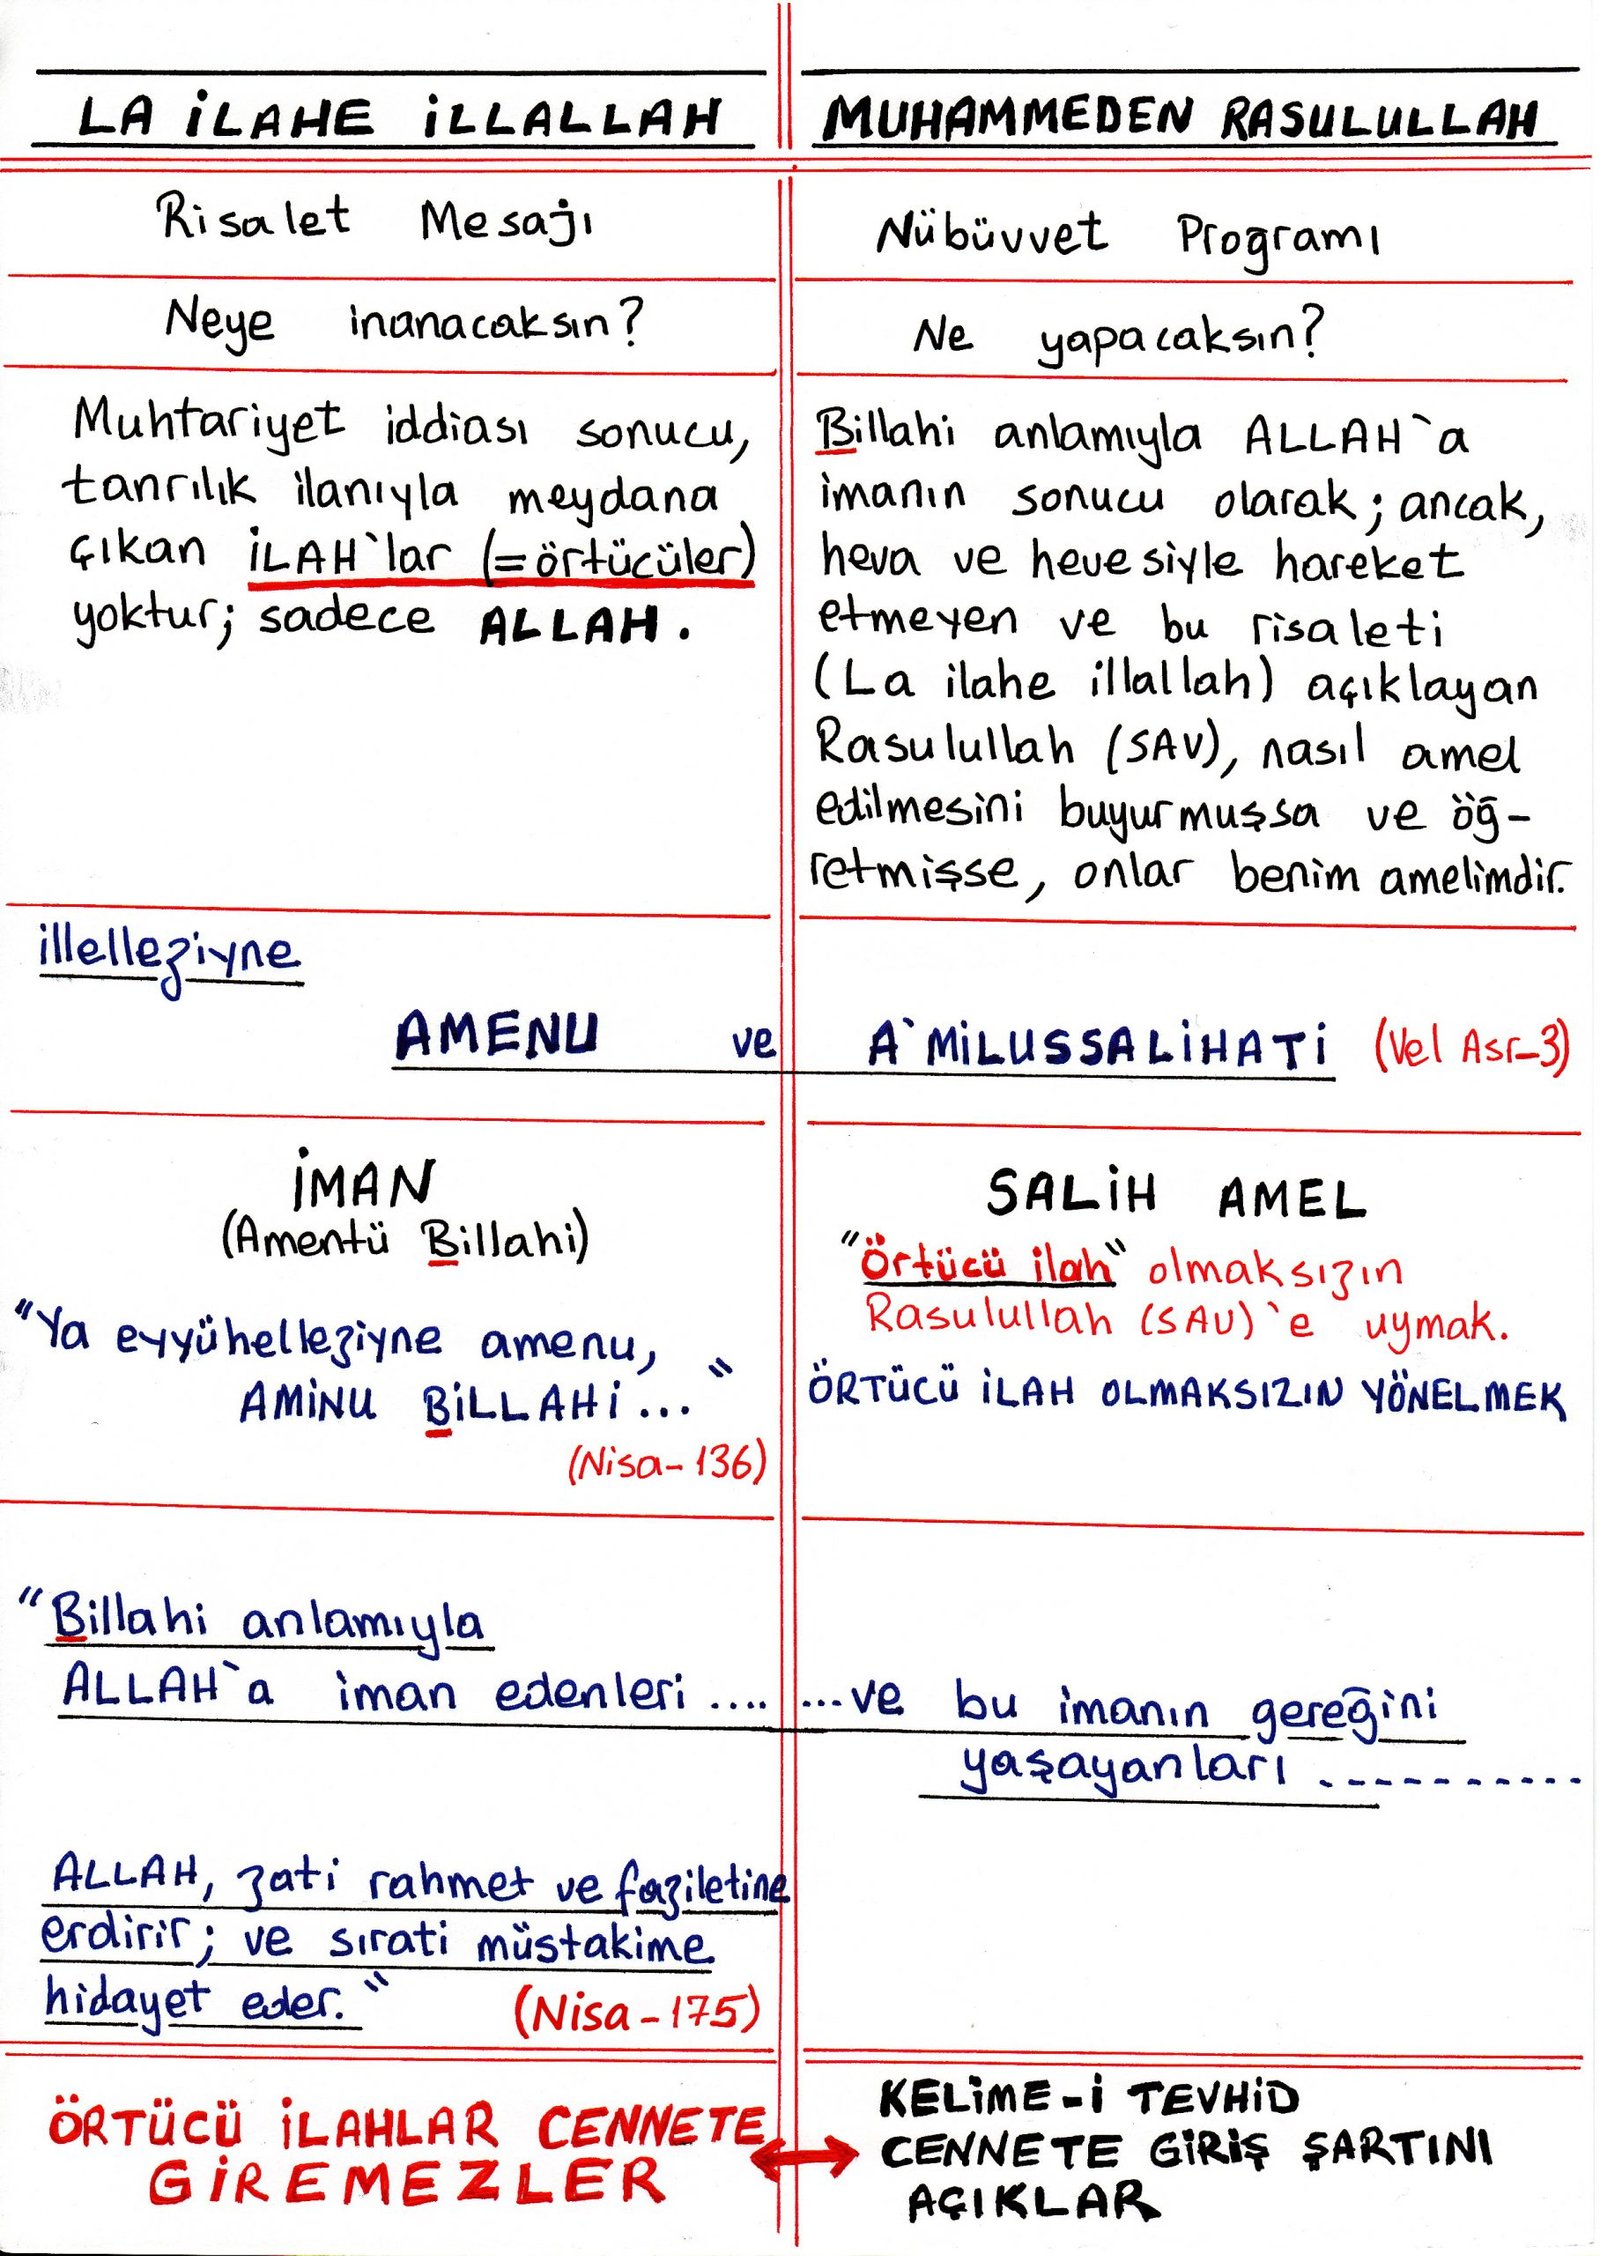 LA İLAHE İLLALLAH
MUHAMMEDEN RASULULLAH
Risalet Mesajı
Nübüvvet Programı
Neye inanacaksın?
Ne yapacaksın?
Muhtariyet iddiası sonucu,
tanrılık ilanıyla meydana
çıkan İLAH`lar (=örtücüler)
yoktur; sadece ALLAH.
Billahi anlamıyla ALLAH`a
imanın sonucu olarak; ancak,
heva ve hevesiyle hareket
etmeyen ve bu risaleti
(La ilahe illallah) açıklayan
Rasulullah (SAV), nasıl amel
edilmesini buyurmuşsa ve öğ-
retmişse, onlar benim amelimdir.
illelleziyne
AMENU ve A`MİLUSSALİHATİ (Vel Asr-3)
İMAN
(Amentü Billahi)
"Ya eyyühelleziyne amenu,
AMİNU BİLLAHİ..."
(Nisa-136)
SALİH AMEL
"Örtücü ilah" olmaksızın
Rasulullah (SAV)`e uymak.
ÖRTÜCÜ İLAH OLMAKSIZIN YÖNELMEK
"Billahi anlamıyla
ALLAH`a iman edenleri .... ...ve bu imanın gereğini
yaşayanları ...........
ALLAH, zati rahmet ve faziletine
erdirir; ve sırati müstakime
hidayet eder."
(Nisa-175)
ÖRTÜCÜ İLAHLAR CENNETE
GİREMEZLER
KELİME-İ TEVHİD
CENNETE GİRİŞ ŞARTINI
AÇIKLAR